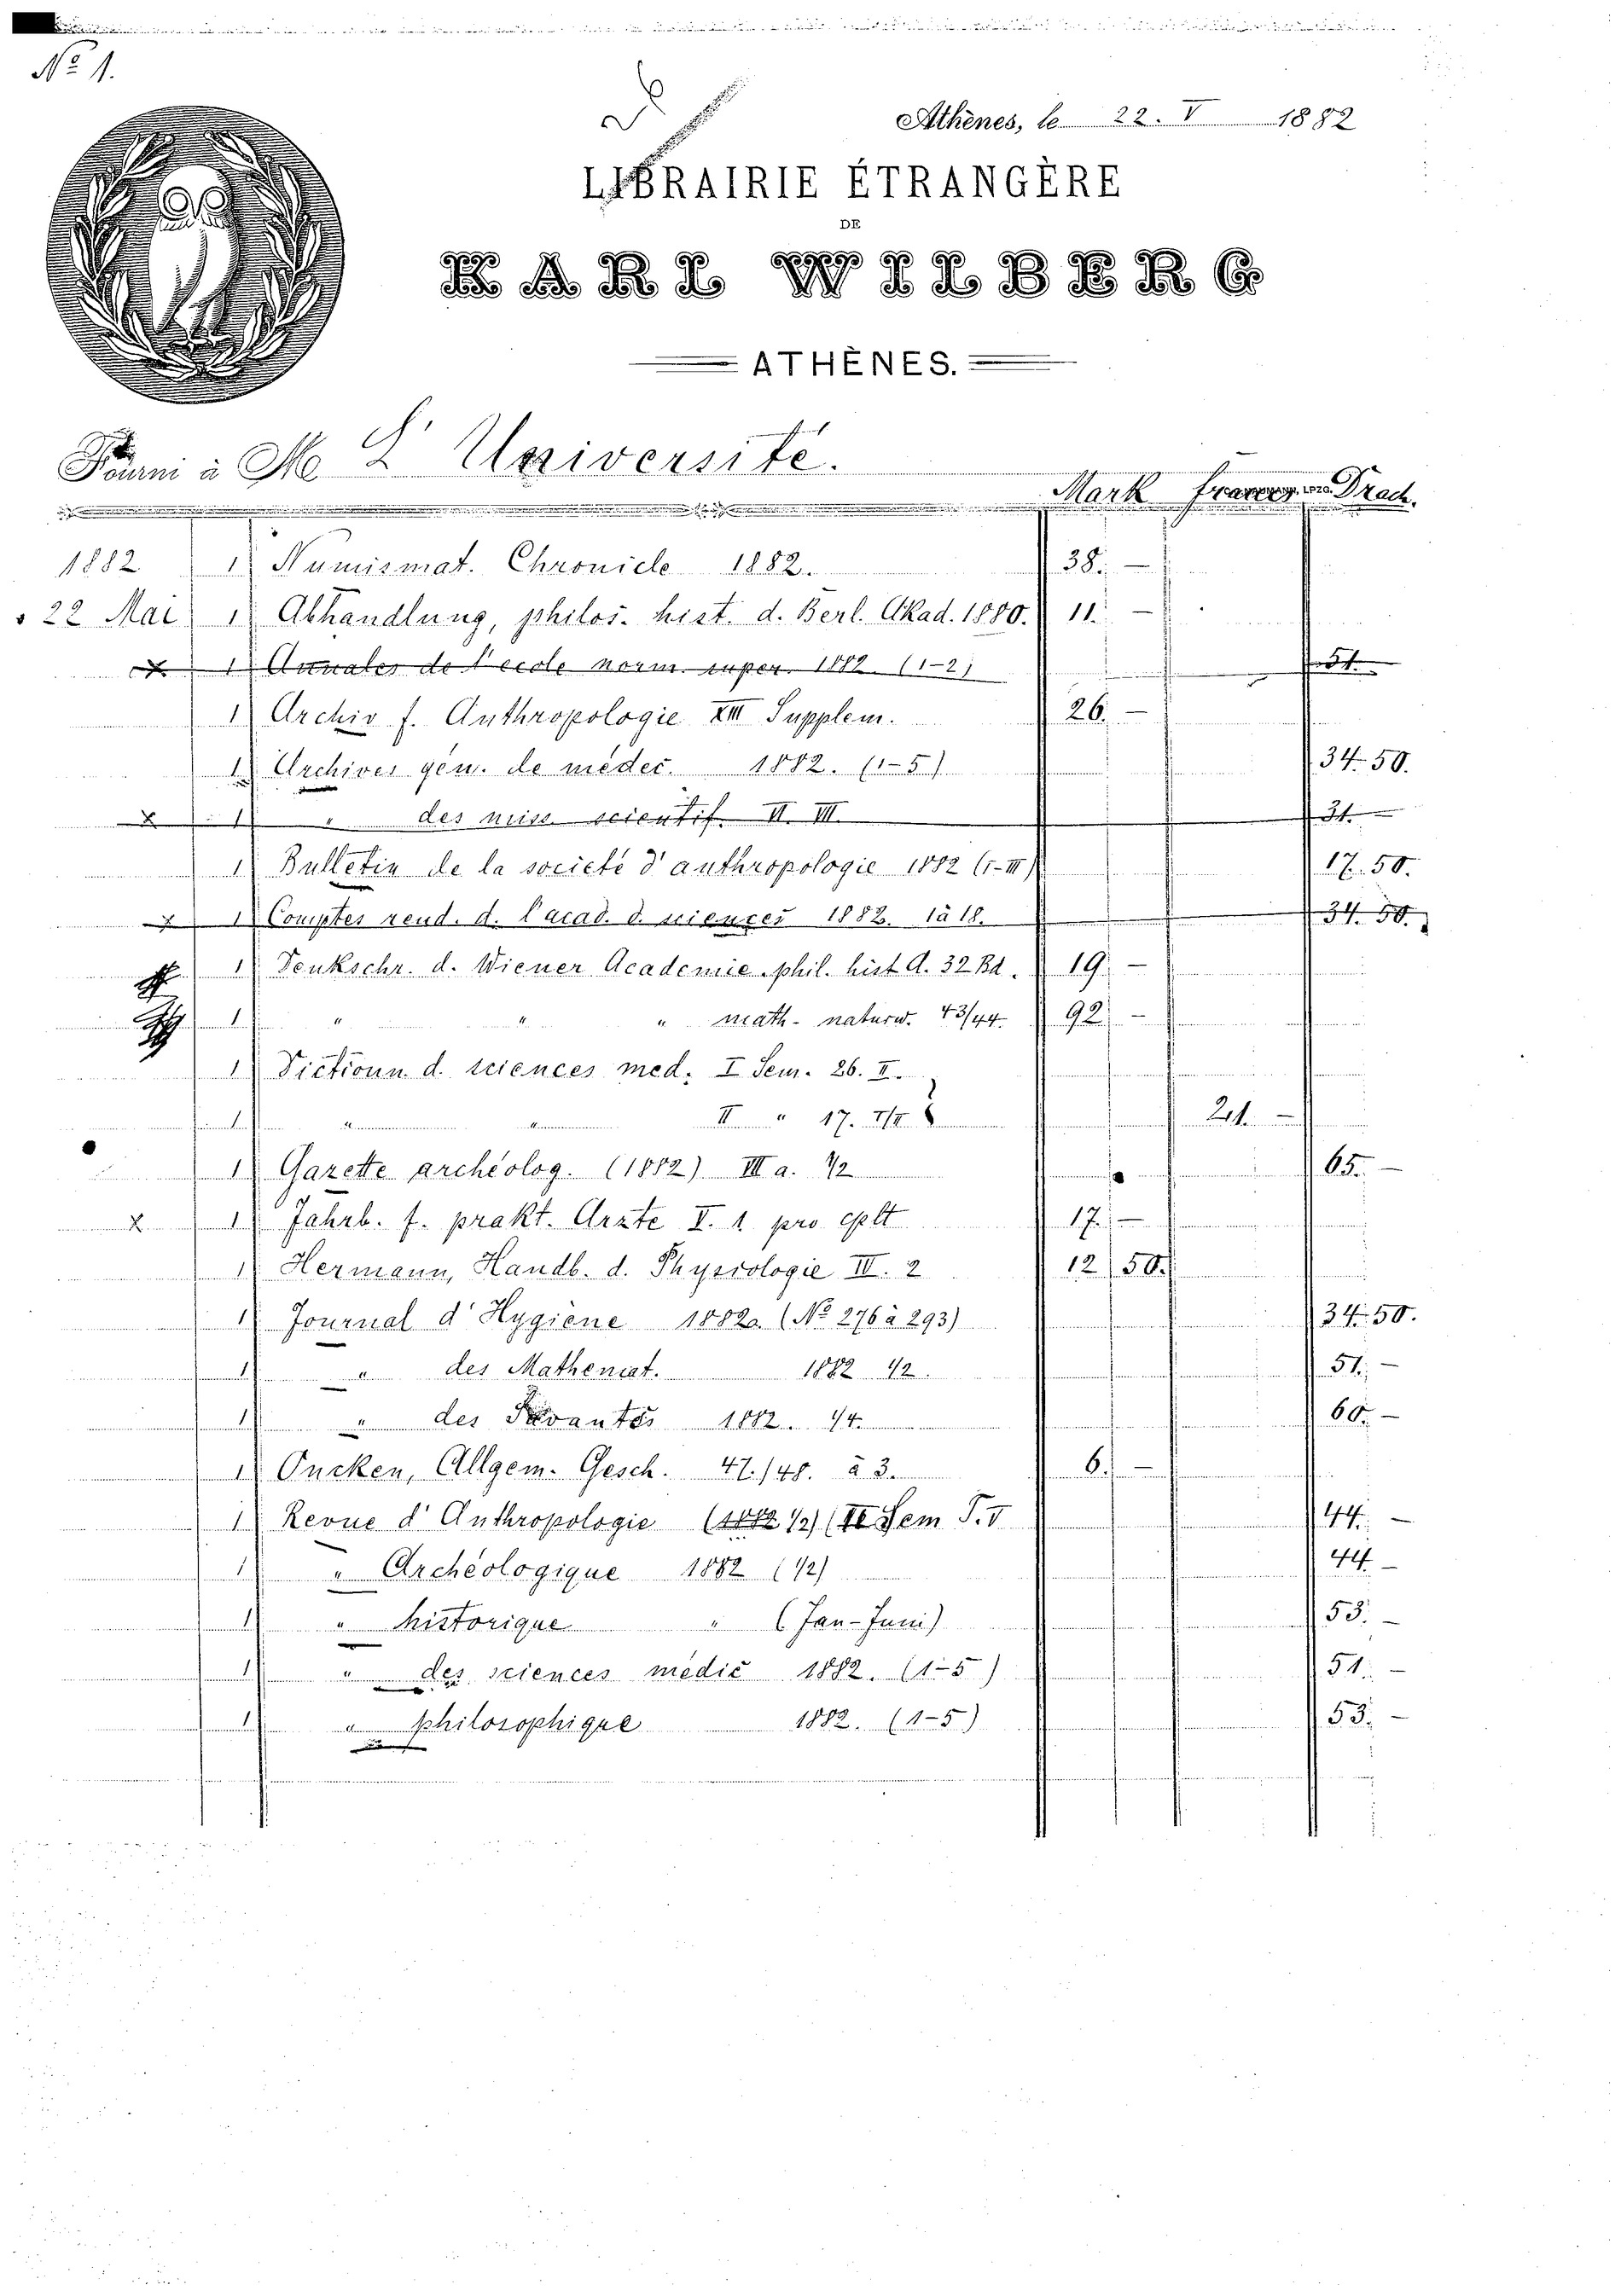 Nº 1.
Athènes, le 22. V 1882
LIBRAIRIE ÉTRANGÈRE
DE
KARL WILBERG
ATHÈNES.
Fourni à M L'Université.
Mark francs Drach.
1882 1 Numismat. Chronicle 1882. 38. —
22 Mai 1 Abhandlung, philos. hist. d. Berl. Akad. 1880. 11. —
x 1 Annales de l'ecole norm. super. 1882. (1-2) 51. —
1 Archiv f. Anthropologie XIII Supplem. 26. —
1 Archives gén. de médec. 1882. (1-5) 34. 50.
x 1 " des miss. scientif. II. III. 31. —
1 Bulletin de la societé d'anthropologie 1882 (I-III) 17. 50.
x 1 Comptes rend. d. l'acad. d. sciences 1882. 1à18. 34. 50.
1 Denkschr. d. Wiener Academie phil. hist Cl. 32 Bd. 19. —
1 " " " math- naturw. 43/44. 92. —
1 Dictionn d. sciences med. I Sem. 26. II.
1 " " II " 17. I/II 21. —
1 Gazette archéolog. (1882) III a. 1/2 65. —
x 1 Jahrb. f. prakt. Arzte V. 1 pro cplt 17. —
1 Hermann, Handb. d. Physiologie IV. 2 12 50.
1 Journal d'Hygiène 1882 (Nº 276 à 293) 34. 50.
1 " des Mathemat. 1882 1/2. 51. —
1 " des Savants 1882. 1/4. 60. —
1 Oncken, Allgem. Gesch. 47./48. à 3. 6. —
1 Revue d'Anthropologie (1882 1/2) (II Sem T. V 44. —
1 " Archéologique 1882 (1/2) 44. —
1 " historique " (Jan-Juni) 53. —
1 " des sciences médic 1882. (1-5) 51. —
1 " philosophique 1882. (1-5) 53. —